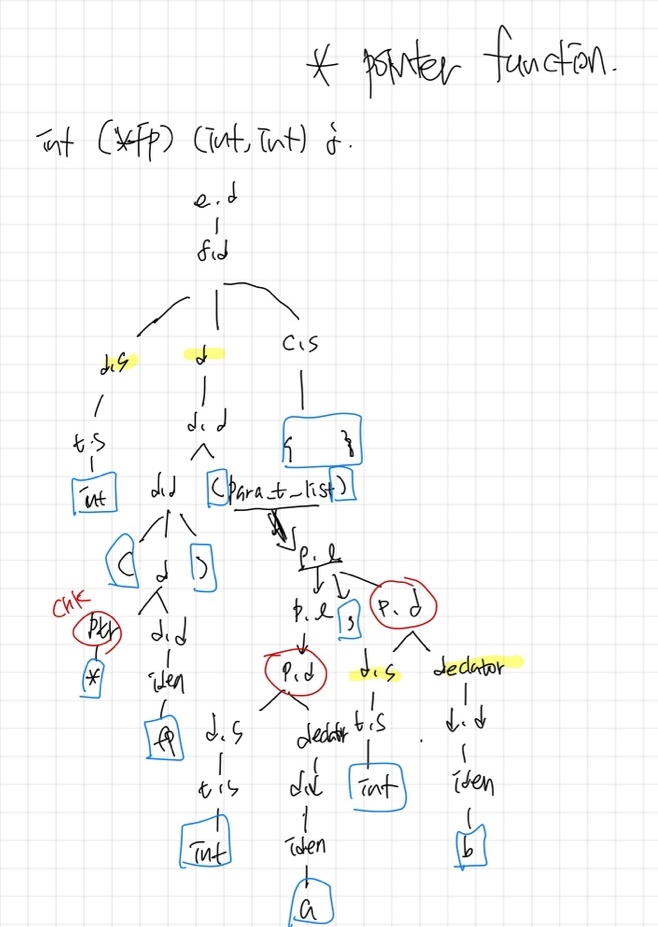 * pointer function.
int (*fp) (int, int) ;.
e.d
f.d
d.s d c.s
t.s d.d { }
int d.d ( para_t_list )
( d ) p.l
chk
ptr d.d p.l , p.d
* iden p.d d.s declator
fp d.s declator t.s d.d
t.s d.d int iden
int iden b
a